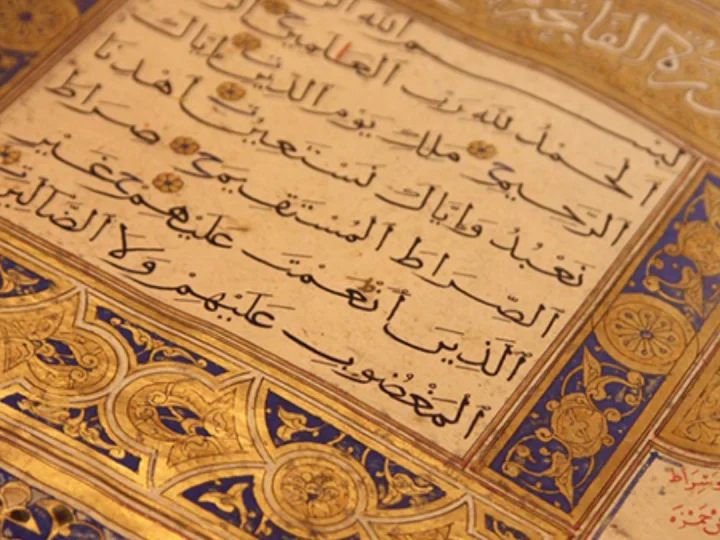 سورة الفاتحة
بسم الله
الْحَمْدُ لِلَّهِ رَبِّ الْعَالَمِينَ
الرَّحِيمِ مَلِكِ يَوْمِ الدِّينِ إِيَّاكَ
نَعْبُدُ وَإِيَّاكَ نَسْتَعِينُ اهْدِنَا
الصِّرَاطَ الْمُسْتَقِيمَ صِرَاطَ
الَّذِينَ أَنْعَمْتَ عَلَيْهِمْ غَيْرِ
الْمَغْضُوبِ عَلَيْهِمْ وَلَا الضَّالِّينَ
حَمْزَة